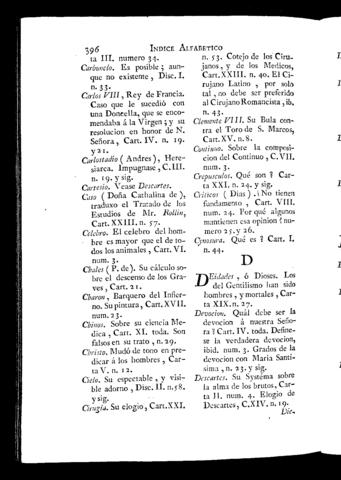 396 INDICE ALFABETICO
ta III. numero 34.
Carbunclo. Es posible; aun-
que no existente, Disc. I.
n. 33.
Carlos VIII, Rey de Francia.
Caso que le sucedió con
una Doncella, que se enco-
mendaba à la Virgen; y su
resolucion en honor de N.
Señora, Cart. IV. n. 19.
y 21.
Carlostadio (Andres), Here-
siarca. Impugnase, C. III.
n. 19. y sig.
Cartesio. Vease Descartes.
Caso (Doña Cathalina de),
traduxo el Tratado de los
Estudios de Mr. Rollin,
Cart. XXIII. n. 57.
Celebro. El celebro del hom-
bre es mayor que el de to-
dos los animales, Cart. VI.
num. 3.
Chales (P. de). Su cálculo so-
bre el descenso de los Gra-
ves, Cart. 21.
Charon, Barquero del Infier-
no. Su pintura, Cart. XVII.
num. 23.
Chinos. Sobre su ciencia Me-
dica, Cart. XI. toda. Son
falsos en su trato, n. 29.
Christo. Mudó de tono en pre-
dicar á los hombres, Car-
ta V. n. 12.
Cielo. Su espectable, y visi-
ble adorno, Disc. II. n. 58.
y sig.
Cirugía. Su elogio, Cart. XXI.
n. 53. Cotejo de los Ciru-
janos, y de los Medicos,
Cart. XXIII. n. 40. El Ci-
rujano Latino, por solo
tal, no debe ser preferido
al Cirujano Romancista, ib.
n. 43.
Clemente VIII. Su Bula con-
tra el Toro de S. Marcos,
Cart. XV. n. 8.
Continuo. Sobre la composi-
cion del Continuo, C. VII.
num. 3.
Crepusculos. Qué son? Car-
ta XXI. n. 24. y sig.
Criticos (Dias). No tienen
fundamento, Cart. VIII.
num. 24. Por qué algunos
mantienen esa opinion? nu-
mero 25. y 26.
Cynosura. Qué es? Cart. I.
n. 44.
D
DEidades, ó Dioses. Los
del Gentilismo han sido
hombres, y mortales, Car-
ta XIX. n. 27.
Devocion. Quál debe ser la
devocion á nuestra Seño-
ra? Cart. IV. toda. Define-
se la verdadera devocion,
ibid. num. 3. Grados de la
devocion con Maria Santí-
sima, n. 23. y sig.
Descartes. Su Systéma sobre
la alma de los brutos, Car-
ta II. num. 4. Elogio de
Descartes, C. XIV. n. 19.
Dic.